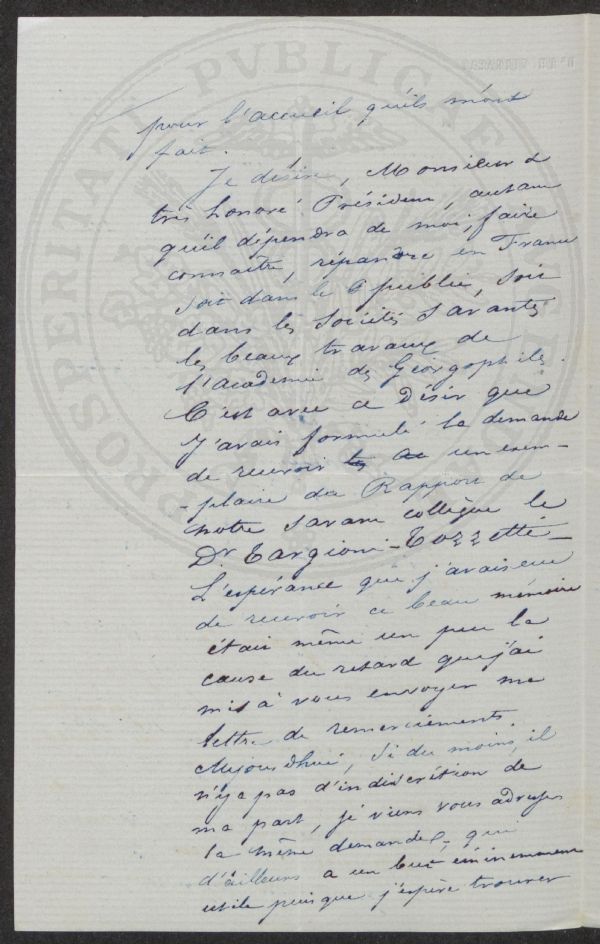 pour l'accueil qu'ils m'ont
fait.
Je désire, Monsieur &
très honoré Président, autant
qu'il dépendra de moi, faire
connaître, répandre en France
soit dans le public, soit
dans les Sociétés Savantes
les beaux travaux de
l'académie des Géorgophiles.
C'est avec ce désir que
j'avais formulé la demande
de recevoir un exem-
-plaire du Rapport de
notre savant collègue le
Dr. Targioni-Tozzetti-
L'espérance que j'avais eue
de recevoir ce beau mémoire
était même un peu la
cause du retard que j'ai
mis à vous envoyer ma
lettre de remerciements.
Aujourdhui, si du moins il
n'y a pas d'indiscrétion de
ma part, je viens vous adresser
la même demande, qui
d'ailleurs a un but éminemment
utile puisque j'espère trouver
PROSPERITATI PVBLICAE